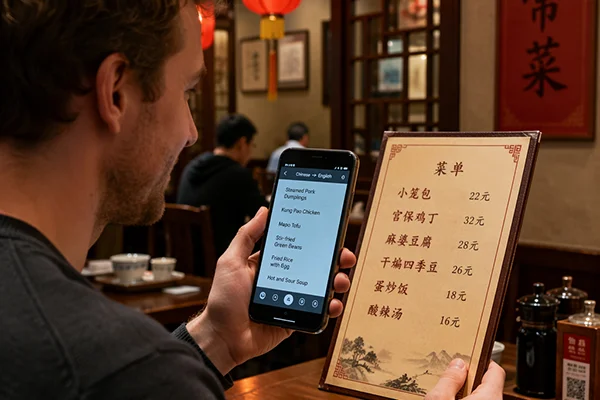 Chinese → English
Steamed Pork
Dumplings
Kung Pao Chicken
Mapo Tofu
Stir-fried
Green Beans
Fried Rice
with Egg
Hot and Sour Soup
菜单
小笼包 22元
宫保鸡丁 32元
麻婆豆腐 28元
干煸四季豆 26元
蛋炒饭 18元
酸辣汤 16元
常
菜